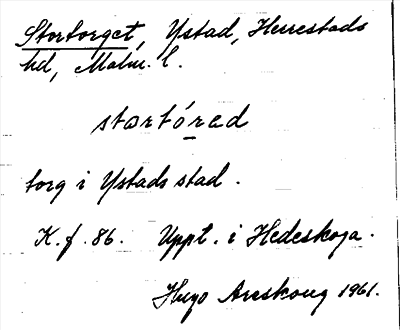 Stortorget, Ystad, Herrestads
hd, Malm. l.
stortóred
torg i Ystads stad.
K. f. 86. Uppt. i Hedeskoga.
Hugo Areskoug 1961.